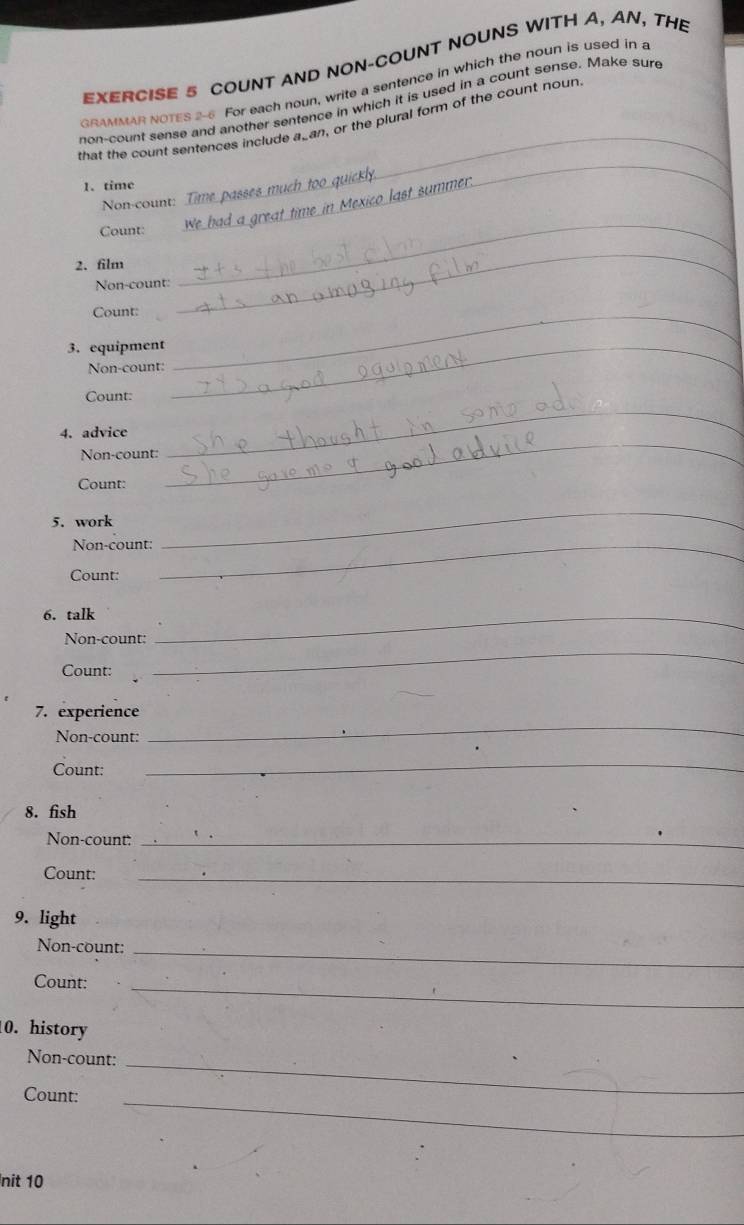 EXERCISE 5 COUNT AND NON-COUNT NOUNS WITH A, AN, THE
GRAMMAR NOTES 2-6 For each noun, write a sentence in which the noun is used in a
non-count sense and another sentence in which it is used in a count sense. Make sure
that the count sentences include a, an, or the plural form of the count noun.
1. time
Non-count: Time passes much too quickly.
Count: We had a great time in Mexico last summer.
2. film
Non-count: It's the best
Count: It's an amazing film
3. equipment
Non-count:
Count: It's a good
4. advice
Non-count: She thought in some
Count: She gave me a good advice
5. work
Non-count:
Count:
6. talk
Non-count:
Count:
7. experience
Non-count:
Count:
8. fish
Non-count:
Count:
9. light
Non-count:
Count:
10. history
Non-count:
Count:
nit 10